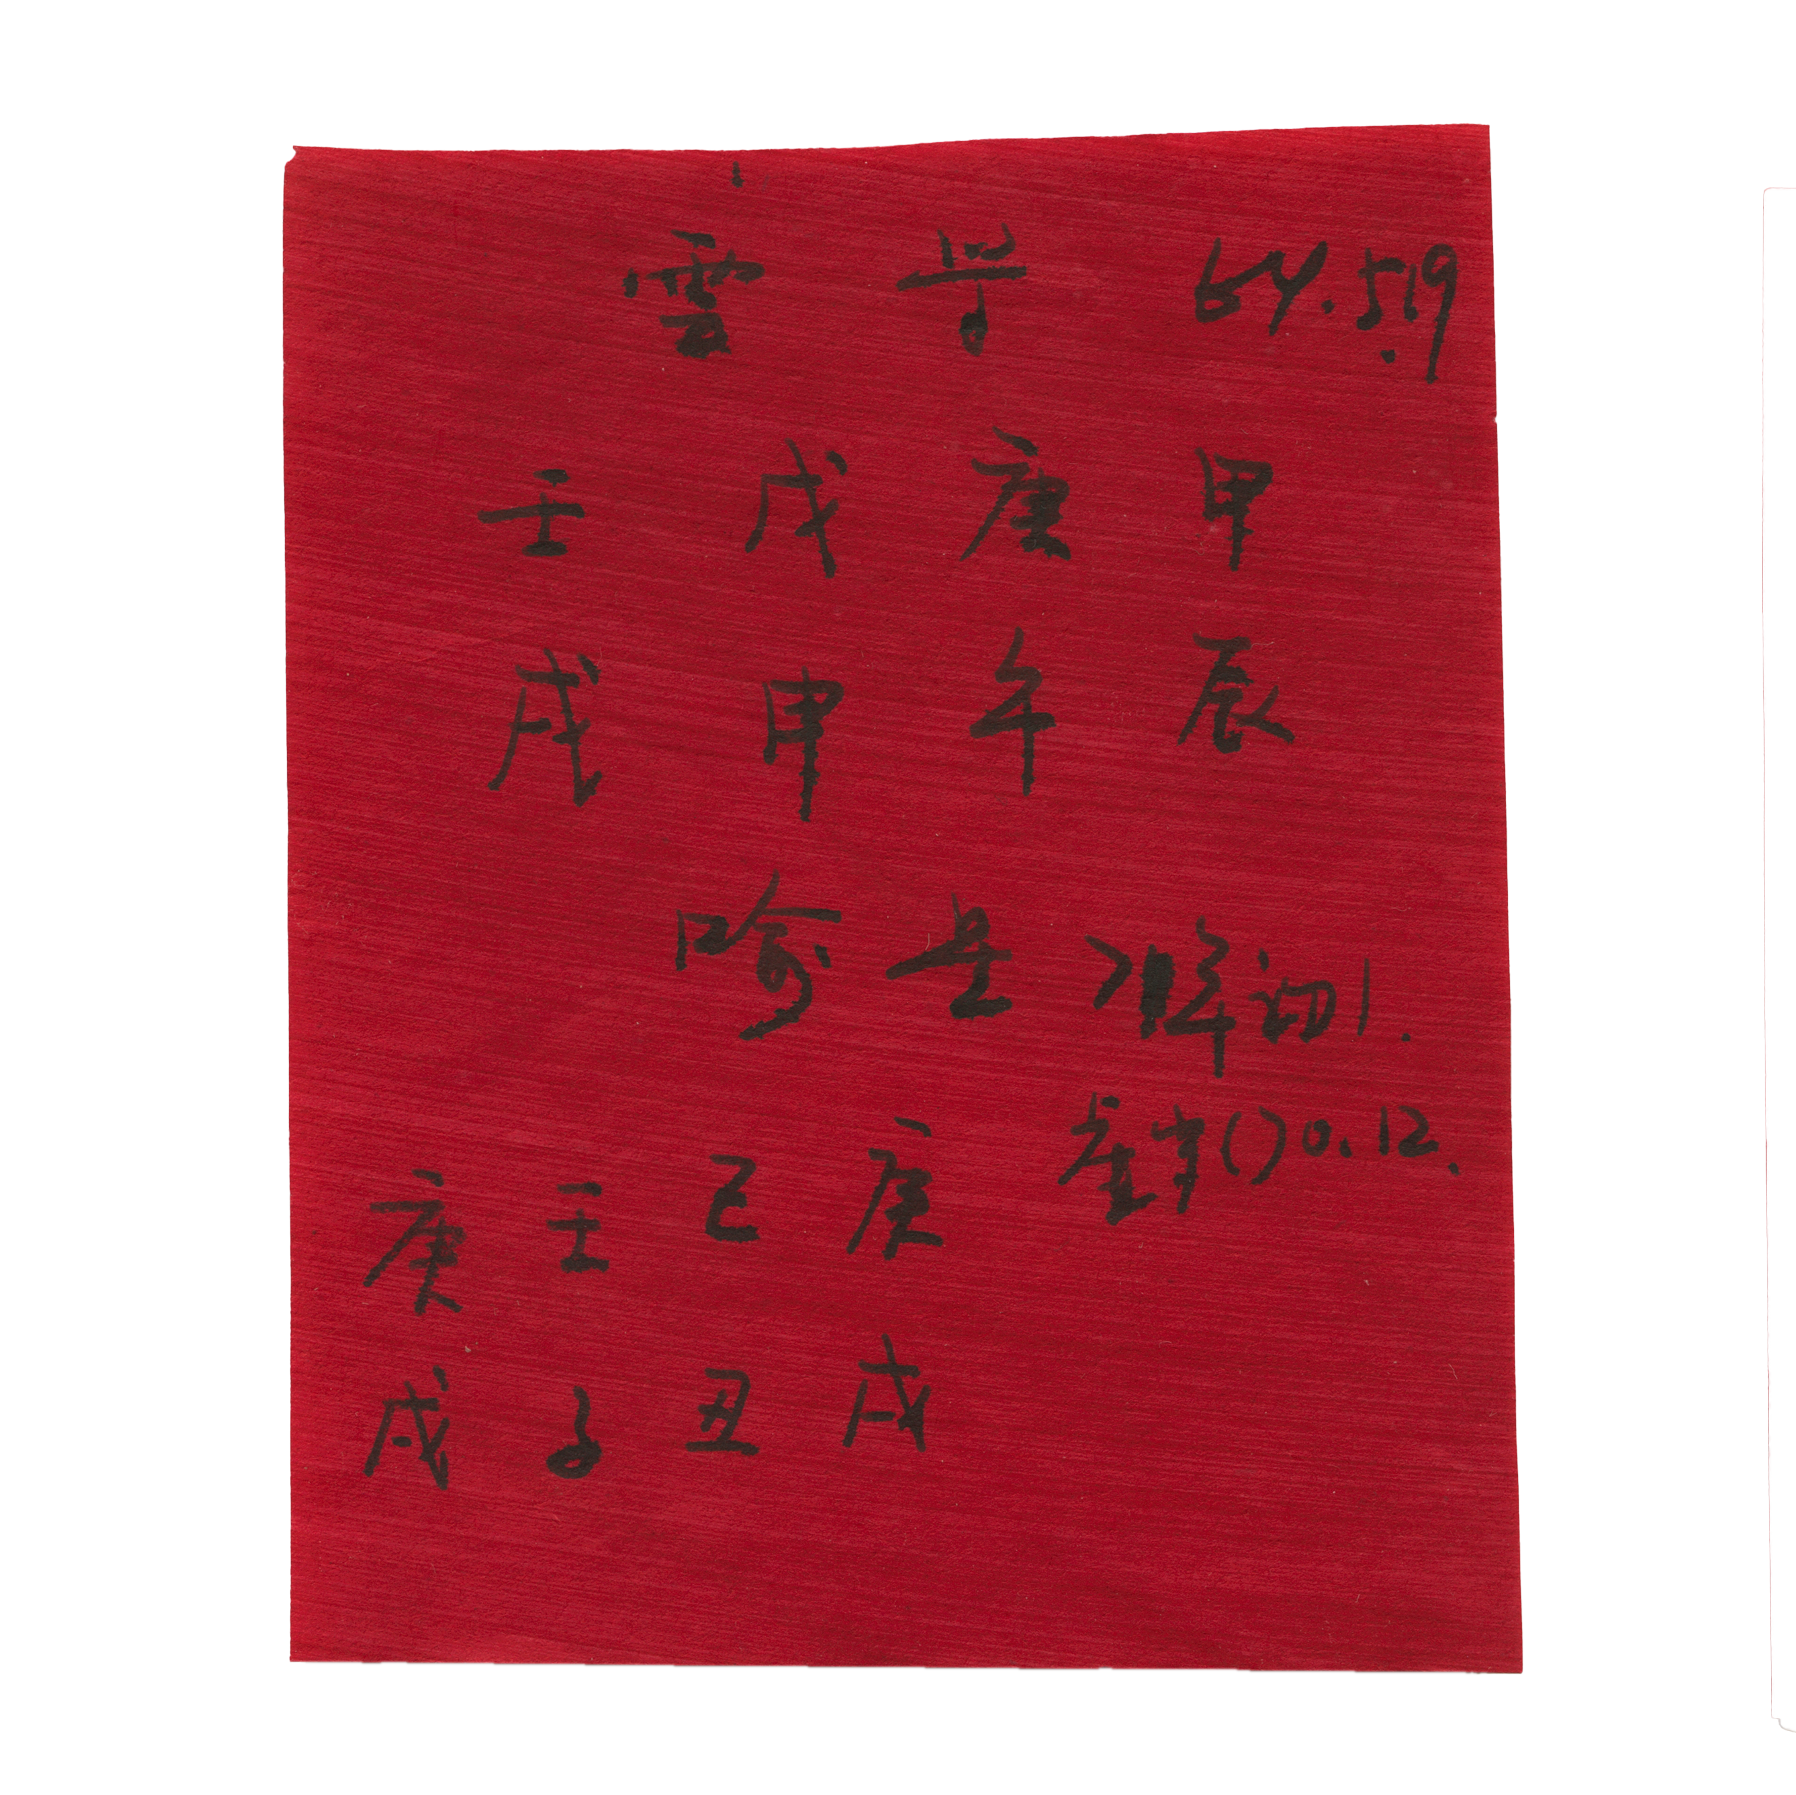 雲 学 64.5.19
壬 戊 庚 甲
戌 申 午 辰
喻
庚 壬 己 庚
0.12.
戌 子 丑 戌